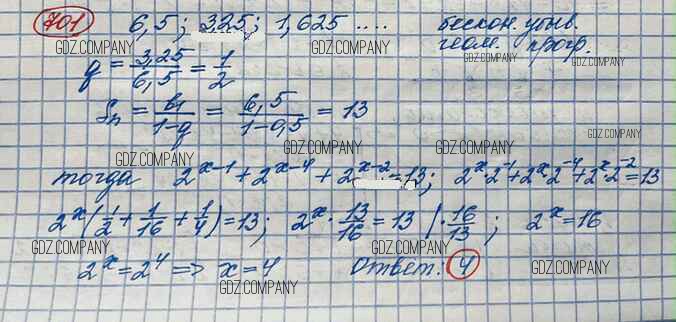 701 6,5; 3,25; 1,625 .... бескон. убыв.
геом. прогр.
GDZ.COMPANY GDZ.COMPANY GDZ.COMPANY GDZ.COMPANY
q = 3,25/6,5 = 1/2
GDZ.COMPANY
Sn = b1/(1-q) = 6,5/(1-0,5) = 13
GDZ.COMPANY GDZ.COMPANY GDZ.COMPANY
GDZ.COMPANY GDZ.COMPANY
тогда 2^(x-1) + 2^(x-4) + 2^(x-2) = 13; 2^x·2^-1 + 2^x·2^-4 + 2^x·2^-2 = 13
GDZ.COMPANY
2^x(1/2 + 1/16 + 1/4) = 13; 2^x · 13/16 = 13 | · 16/13; 2^x = 16
GDZ.COMPANY GDZ.COMPANY GDZ.COMPANY
2^x = 2^4 => x = 4 Ответ: 4
GDZ.COMPANY GDZ.COMPANY